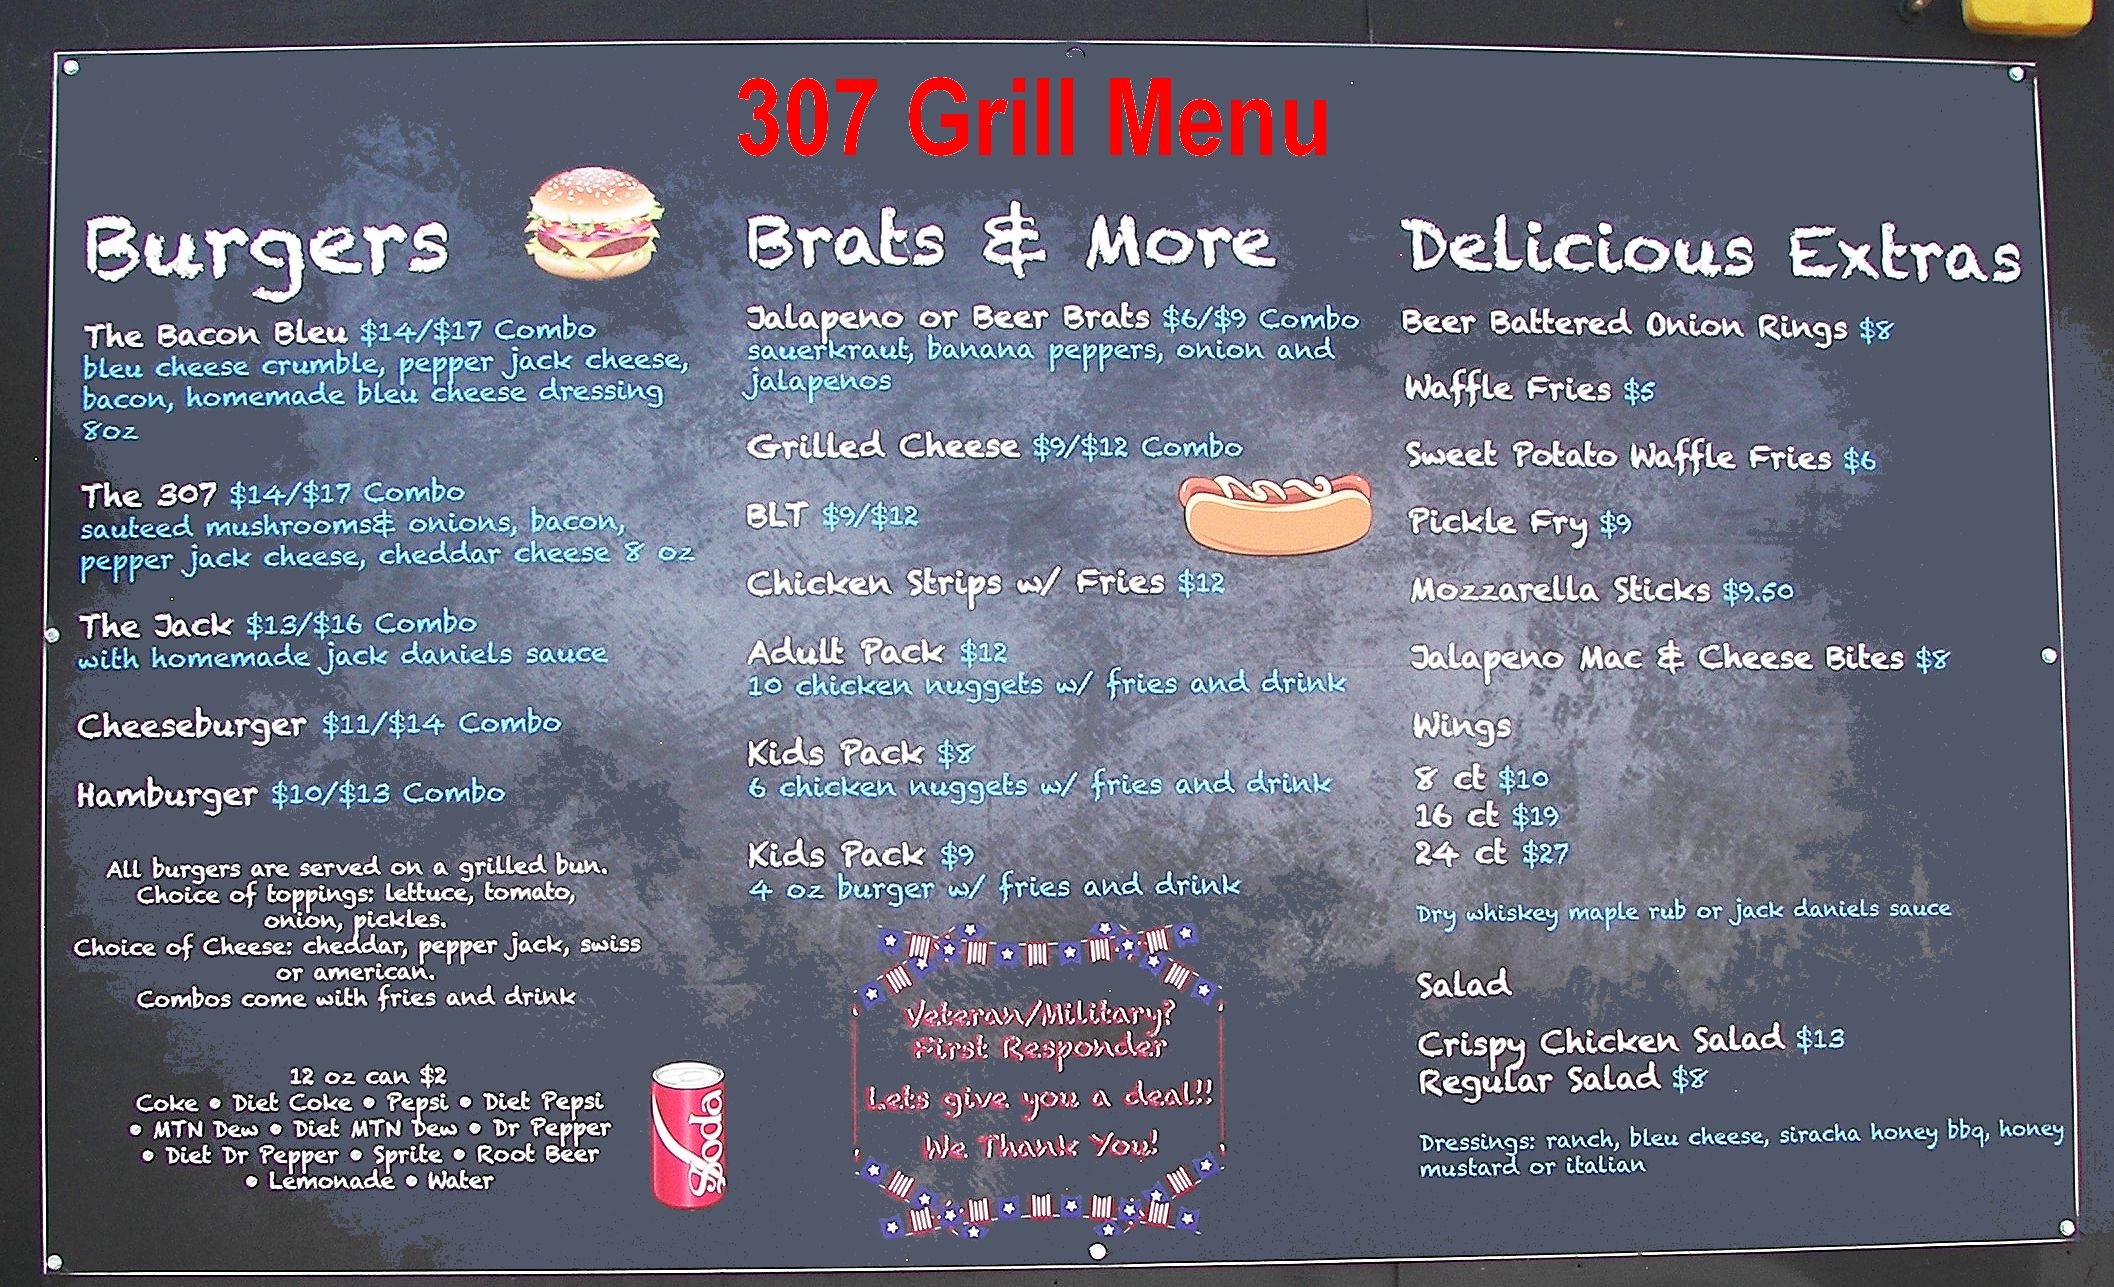 307 Grill Menu
Burgers
The Bacon Bleu $14/$17 Combo
bleu cheese crumble, pepper jack cheese,
bacon, homemade bleu cheese dressing
8oz
The 307 $14/$17 Combo
sauteed mushrooms& onions, bacon,
pepper jack cheese, cheddar cheese 8 oz
The Jack $13/$16 Combo
with homemade jack daniels sauce
Cheeseburger $11/$14 Combo
Hamburger $10/$13 Combo
All burgers are served on a grilled bun.
Choice of toppings: lettuce, tomato,
onion, pickles.
Choice of Cheese: cheddar, pepper jack, swiss
or american.
Combos come with fries and drink
12 oz can $2
Coke • Diet Coke • Pepsi • Diet Pepsi
• MTN Dew • Diet MTN Dew • Dr Pepper
• Diet Dr Pepper • Sprite • Root Beer
• Lemonade • Water
Soda
Brats & More
Jalapeno or Beer Brats $6/$9 Combo
sauerkraut, banana peppers, onion and
jalapenos
Grilled Cheese $9/$12 Combo
BLT $9/$12
Chicken Strips w/ Fries $12
Adult Pack $12
10 chicken nuggets w/ fries and drink
Kids Pack $8
6 chicken nuggets w/ fries and drink
Kids Pack $9
4 oz burger w/ fries and drink
Veteran/Military?
First Responder
Lets give you a deal!!
We Thank You!
Delicious Extras
Beer Battered Onion Rings $8
Waffle Fries $5
Sweet Potato Waffle Fries $6
Pickle Fry $9
Mozzarella Sticks $9.50
Jalapeno Mac & Cheese Bites $8
Wings
8 ct $10
16 ct $19
24 ct $27
Dry whiskey maple rub or jack daniels sauce
Salad
Crispy Chicken Salad $13
Regular Salad $8
Dressings: ranch, bleu cheese, siracha honey bbq, honey
mustard or italian